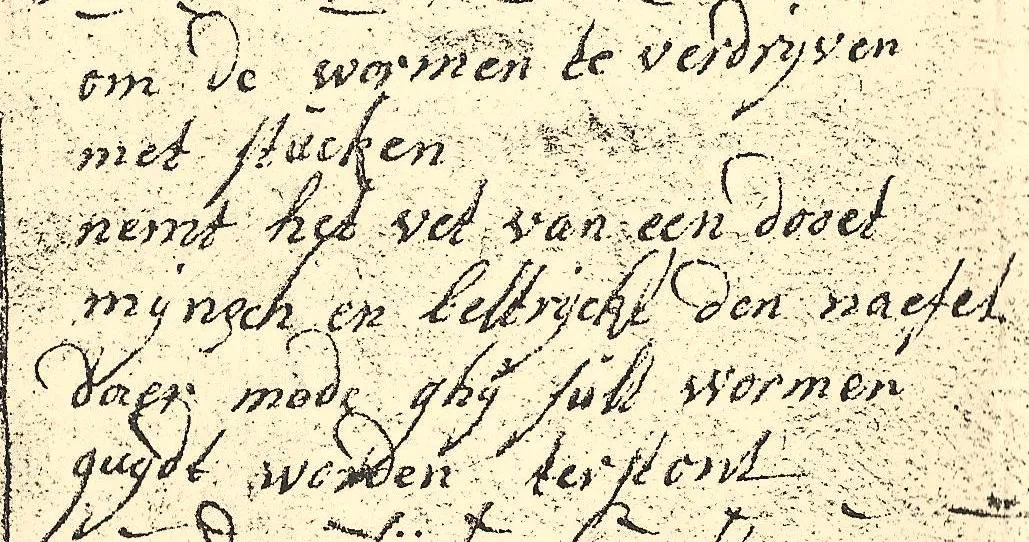 om de wormen te verdrijven
met stücken
nemt het vet van een dooet
mijnsch en bestrijckt den naefel
daer mede ghij sült wormen
quydt worden terstont